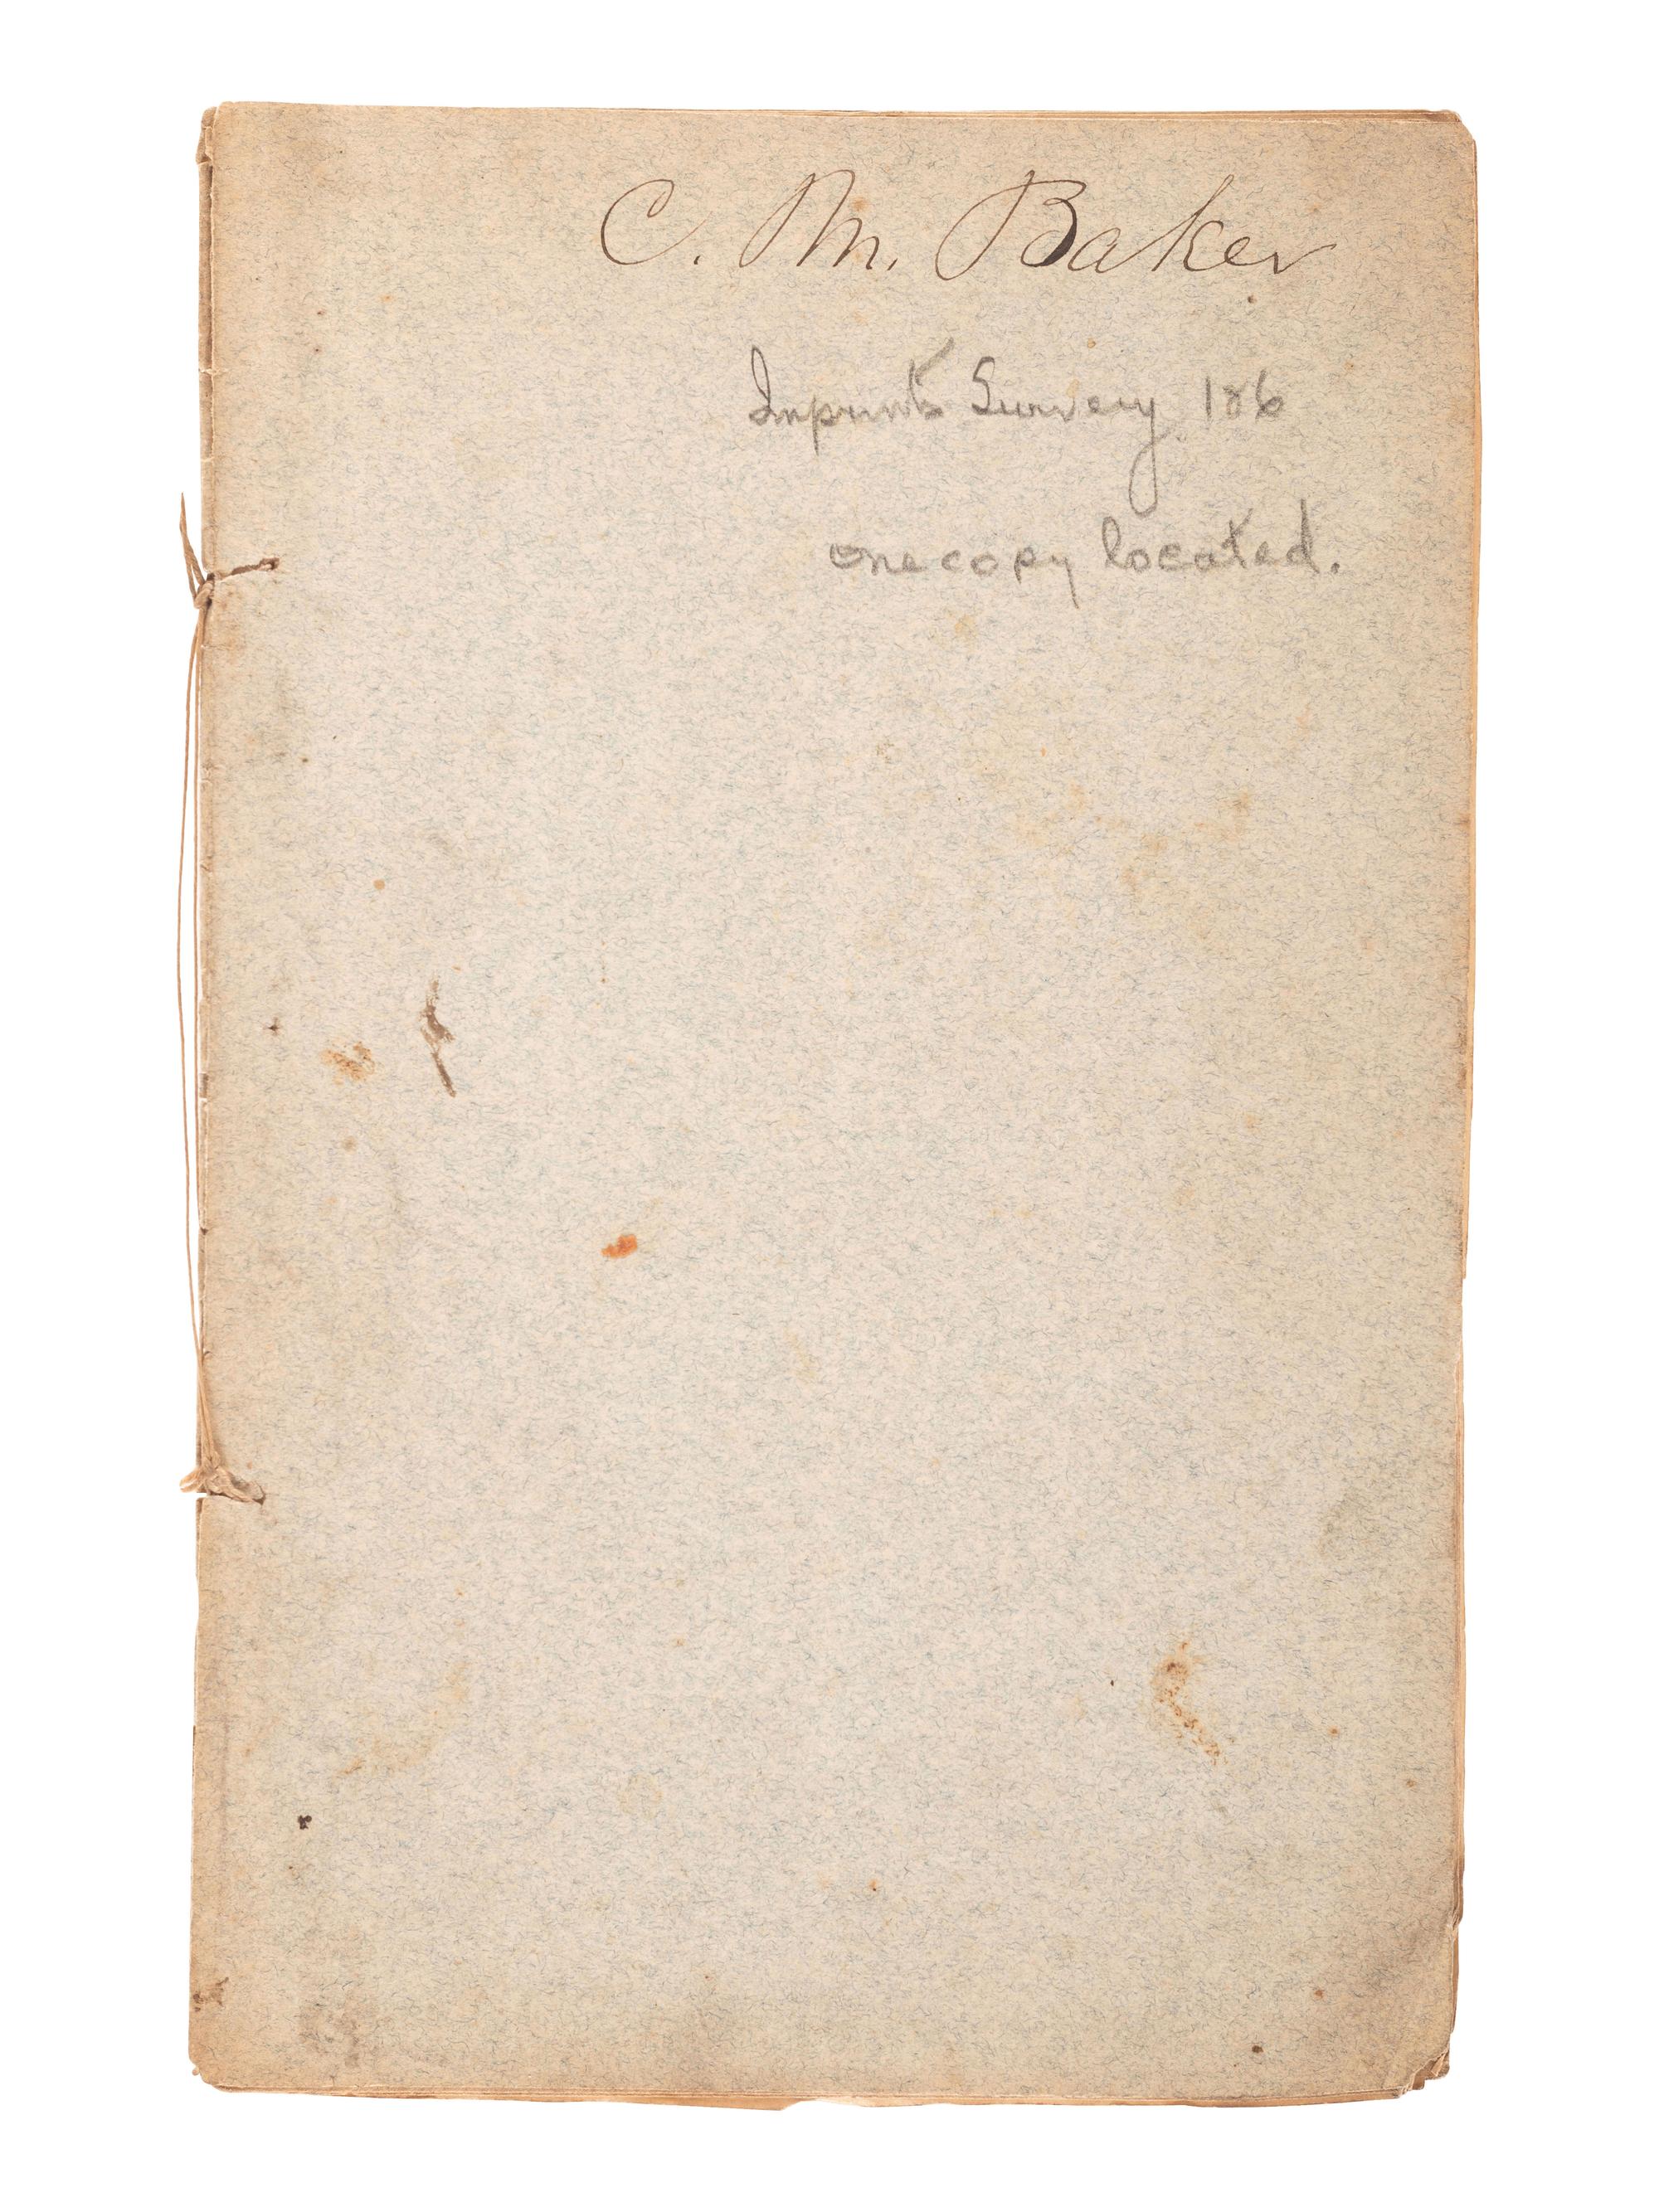 C. M. Baker
Imprints Survey 186
one copy located.